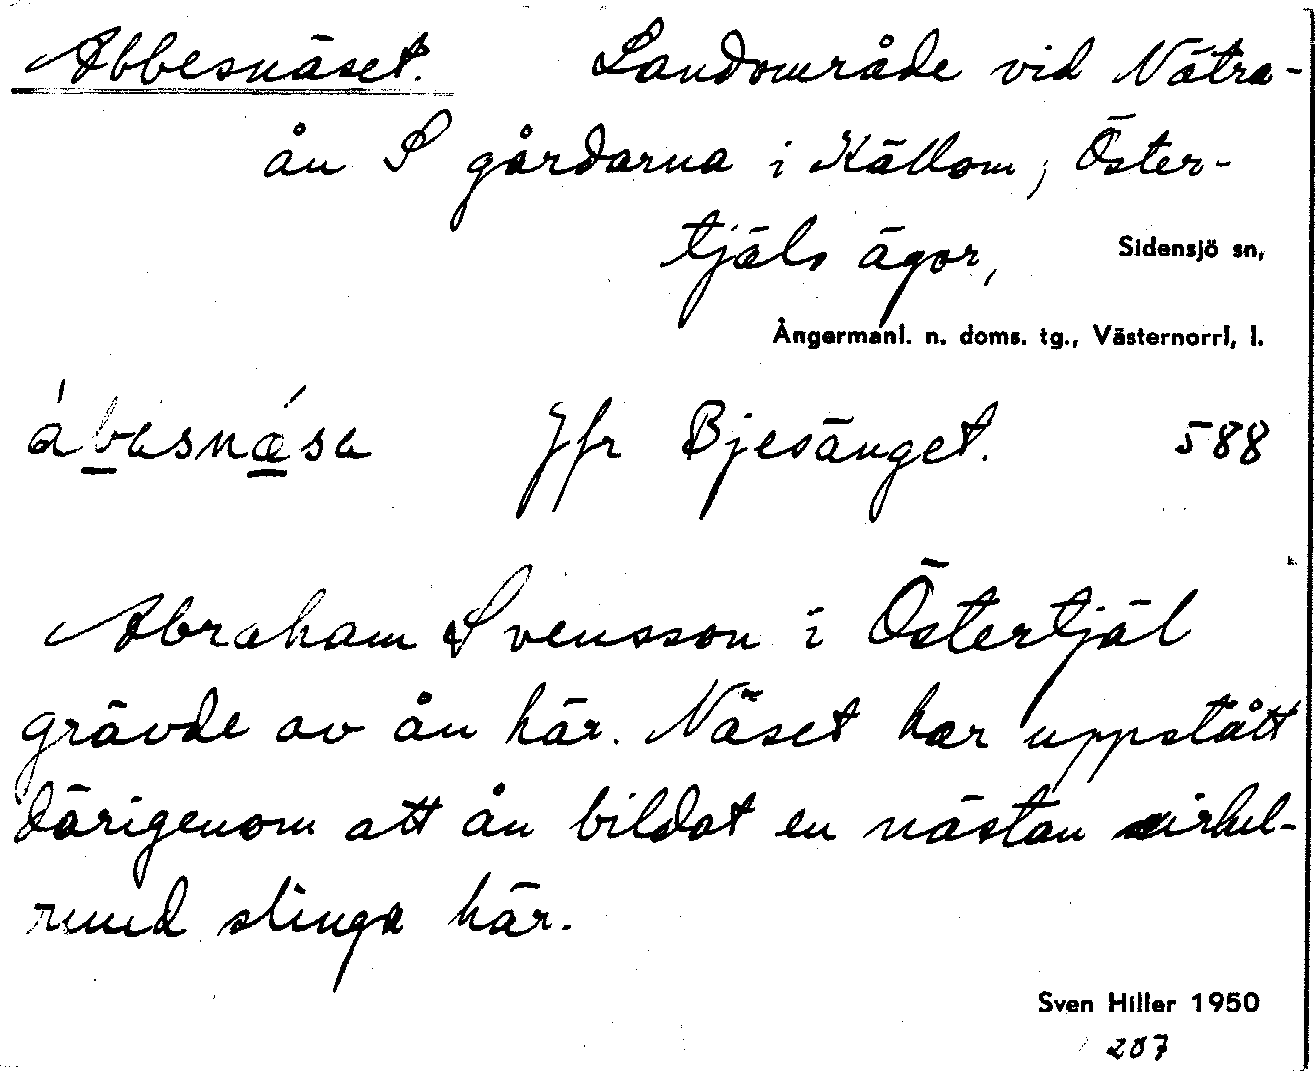 Abbesnäset. Landområde vid Nätra-
ån S gårdarna i Källom, Öster-
tjäls ägor, Sidensjö sn,
Ångermanl. n. doms. tg., Västernorrl. l.
ábasnǽsa Jfr Bjesänget. 588
Abraham Svensson i Östertjäl
grävde av ån här. Näset har uppstått
därigenom att ån bildat en nästan cirkel-
rund slinga här.
Sven Hiller 1950
207